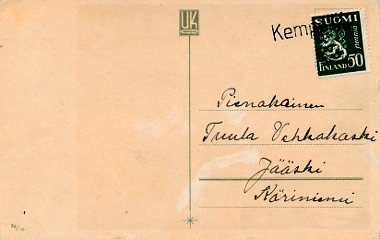 UK
Kemp
SUOMI
FINLAND 50
Pienokainen
Tuula Vehkakoski
Jääski
Kärinienni